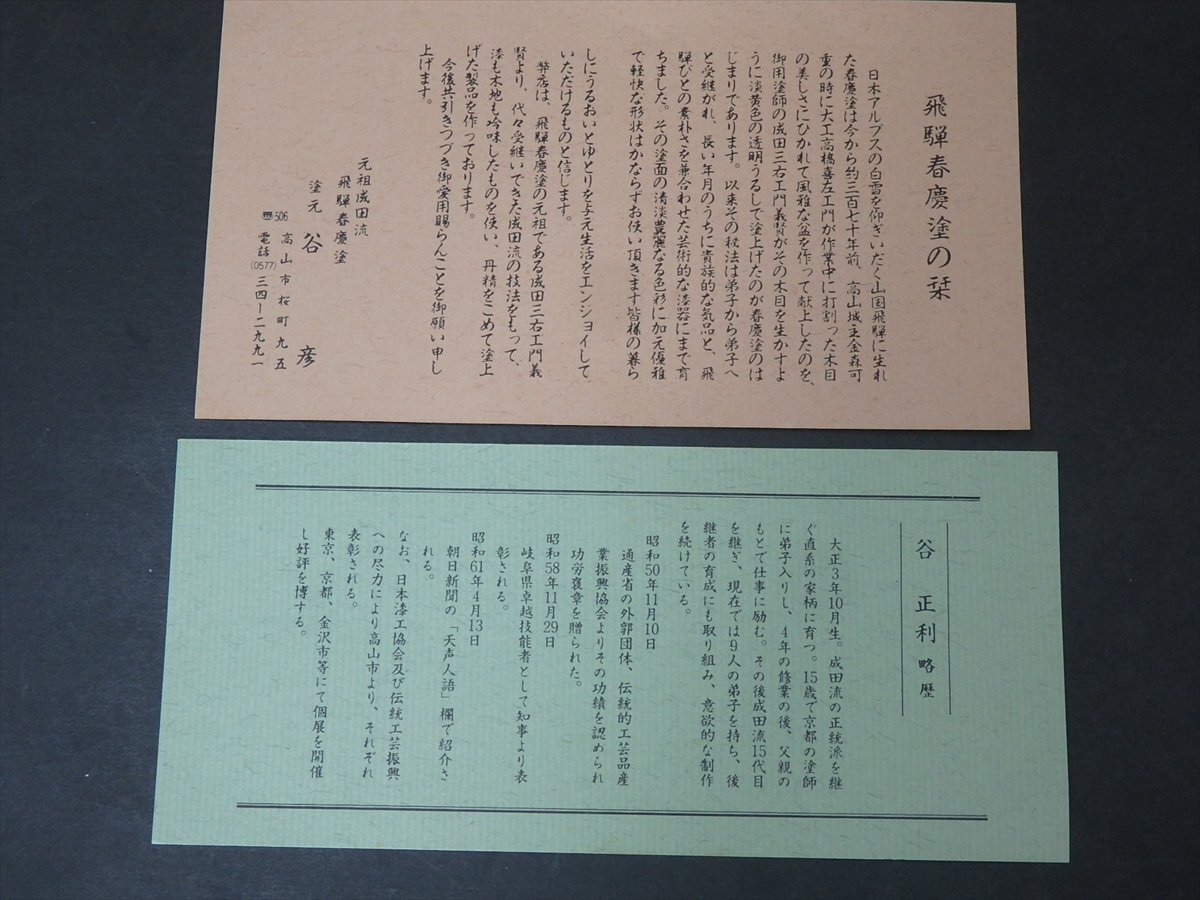 飛騨春慶塗の栞
日本アルプスの白雪を仰ぎいだく山国飛騨に生れ
た春慶塗は今から約三百七十年前、高山城主金森可
重の時に大工高橋喜左エ門が作業中に打割った木目
の美しさにひかれて風雅な盆を作って献上したのを、
御用塗師の成田三右エ門義賢がその木目を生かすよ
うに淡黄色の透明うるしで塗上げたのが春慶塗のは
じまりであります。以来その秘法は弟子から弟子へ
と受継がれ、長い年月のうちに貴族的な気品と、飛
騨びとの素朴さを兼合わせた芸術的な漆器にまで育
ちました。その塗面の清淡豊麗なる色彩に加え優雅
で軽快な形状はかならずお使い頂きます皆様の暮ら
しにうるおいとゆとりを与え生活をエンジョイして
いただけるものと信じます。
弊店は、飛騨春慶塗の元祖である成田三右エ門義
賢より、代々受継いできた成田流の技法をもって、
漆も木地も吟味したものを使い、丹精をこめて塗上
げた製品を作っております。
今後共引きつづき御愛用賜らんことを御願い申し
上げます。
元祖成田流
飛騨春慶塗
塗元 谷 彦
〒506 高山市桜町九五
電話(0577)三四ー二九九一
谷 正利 略歴
大正3年10月生。成田流の正統派を継
ぐ直系の家柄に育つ。15歳で京都の塗師
に弟子入りし、4年の修業の後、父親の
もとで仕事に励む。その後成田流15代目
を継ぎ、現在では9人の弟子を持ち、後
継者の育成にも取り組み、意欲的な制作
を続けている。
昭和50年11月10日
通産省の外郭団体、伝統的工芸品産
業振興協会よりその功績を認められ
功労褒章を贈られた。
昭和58年11月29日
岐阜県卓越技能者として知事より表
彰される。
昭和61年4月13日
朝日新聞の「天声人語」欄で紹介さ
れる。
なお、日本漆工協会及び伝統工芸振興
への尽力により高山市より、それぞれ
表彰される。
東京、京都、金沢市等にて個展を開催
し好評を博する。